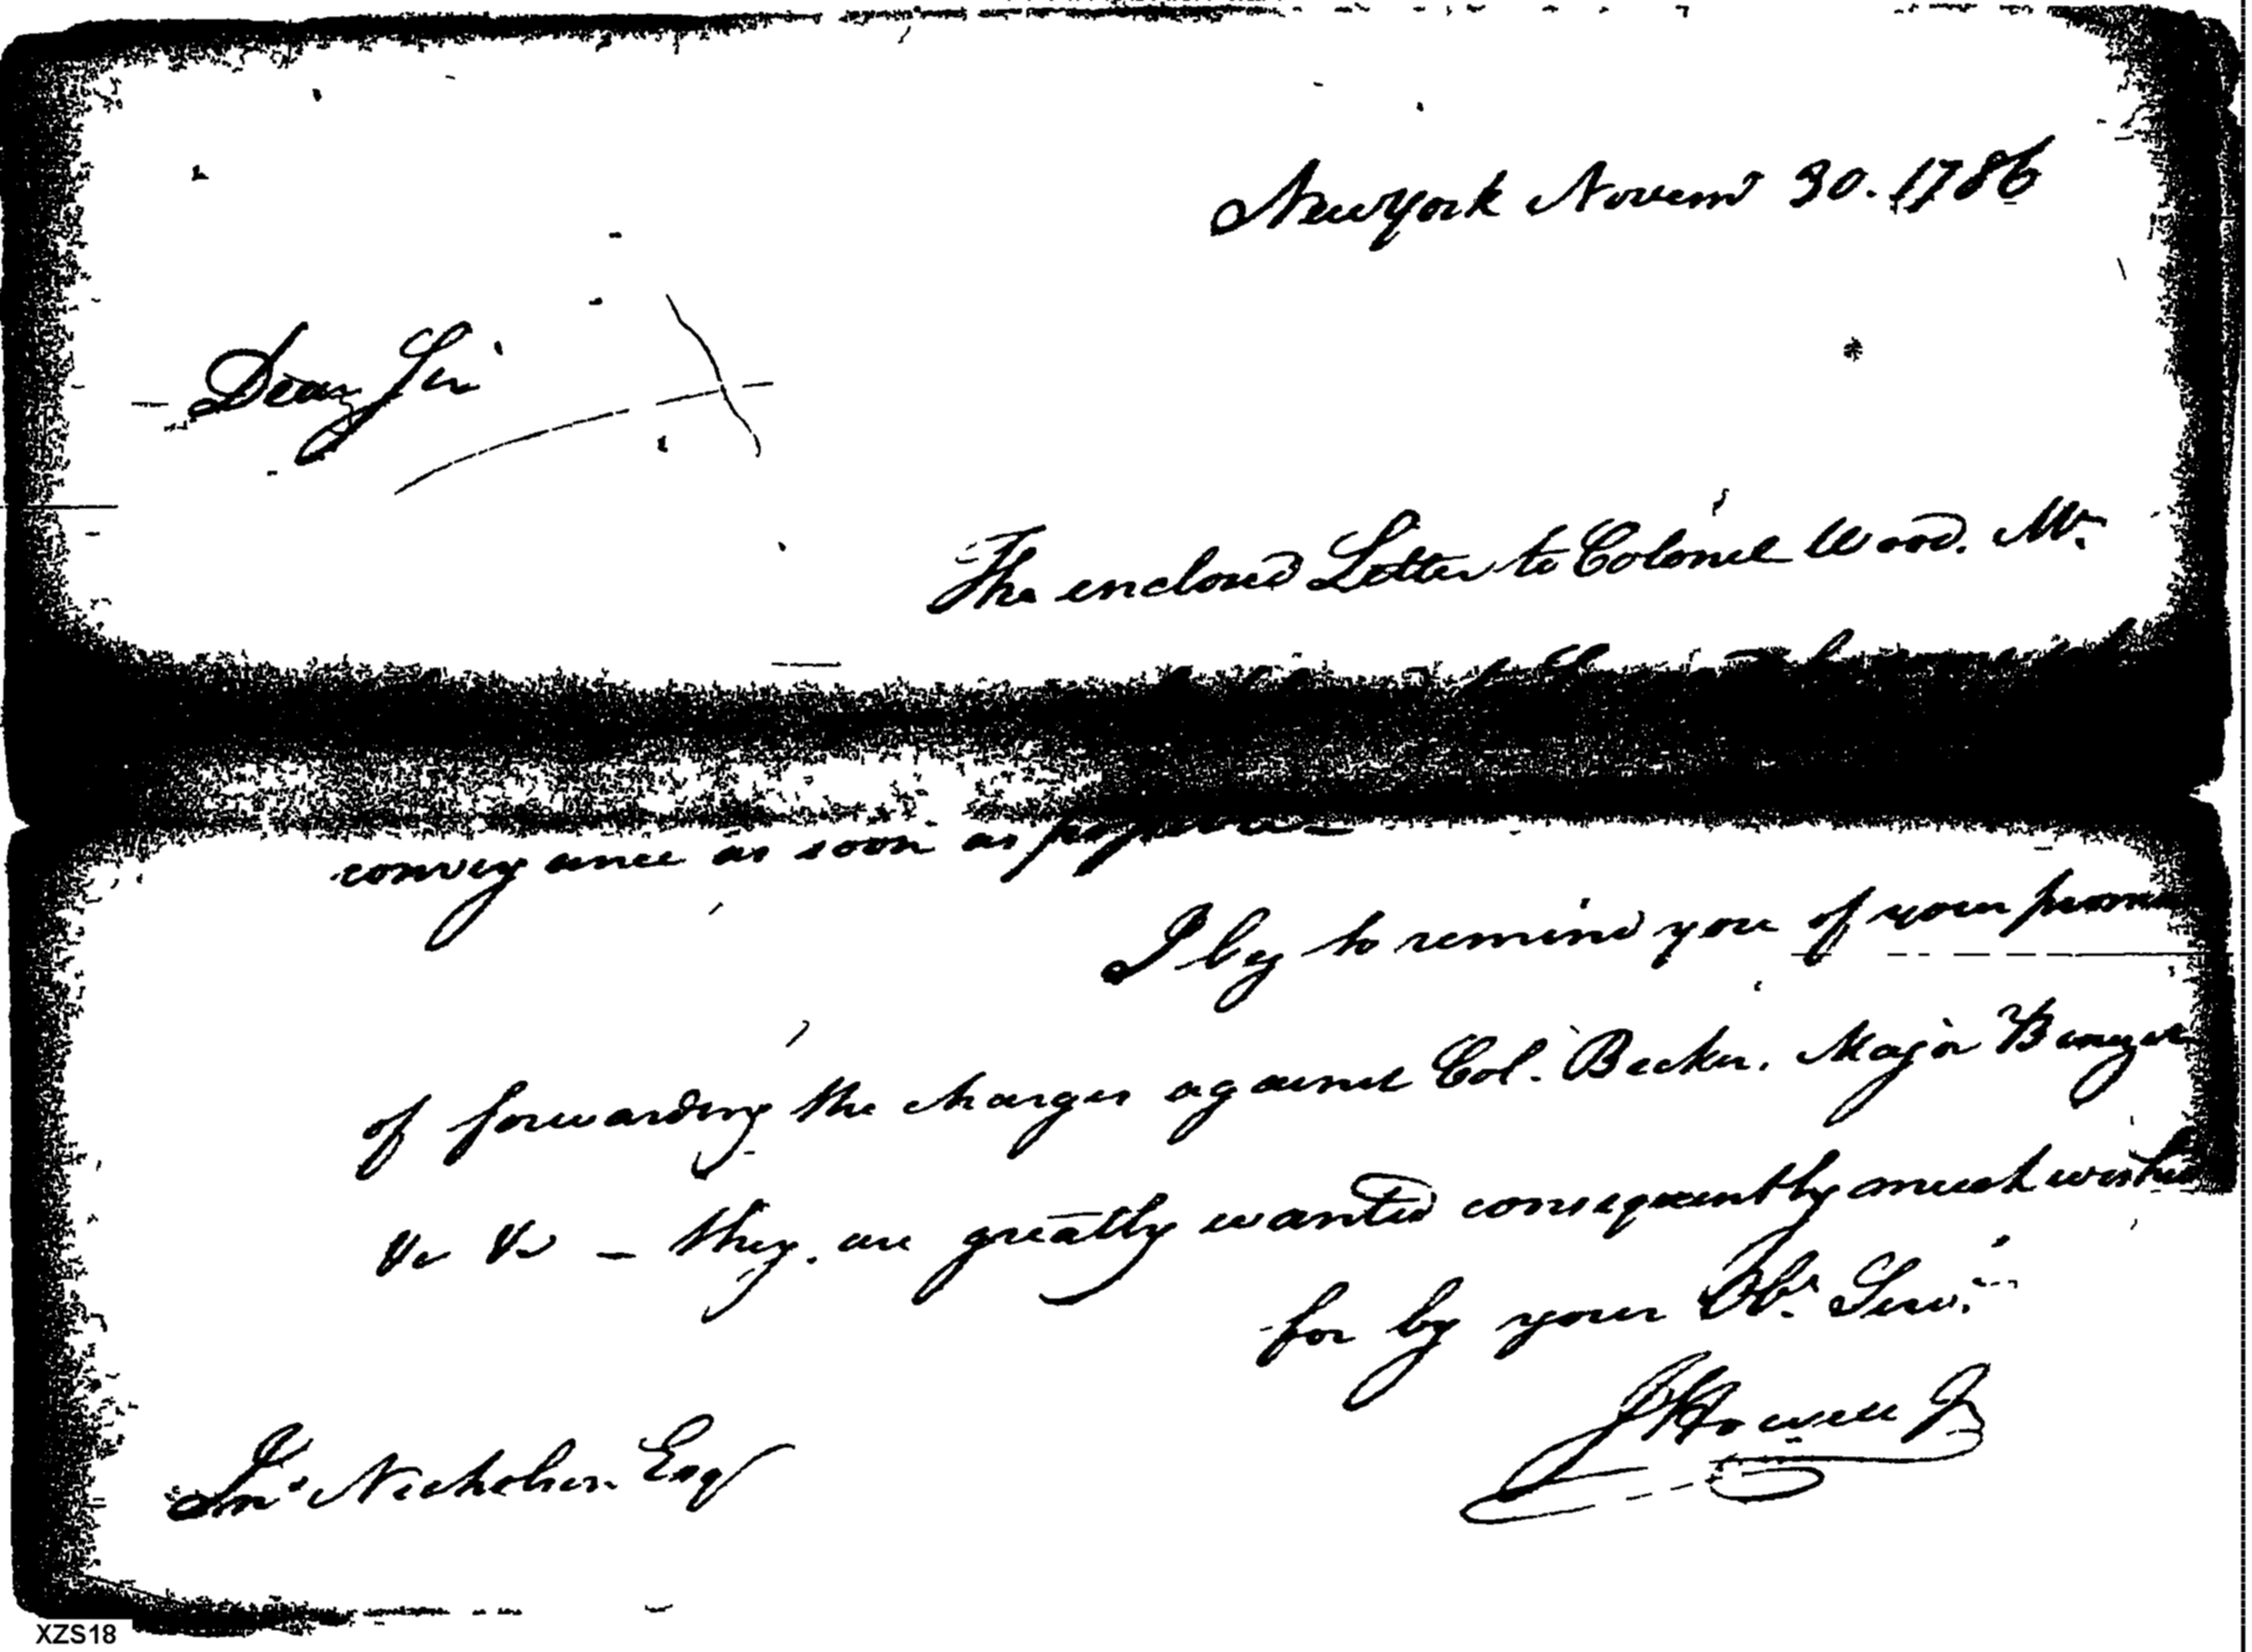 New York Novemr 30. 1786
Dear Sir
The enclosed Letter to Colonel Wood. Mr.
conveyance as soon as possible
I beg to remind you of your
of forwarding the charges against Col. Becker. Major
&c &c – they are greatly wanted consequently much wished
for by your Obt. Servt.
J Howell Jr
Jno Nicholson Esqr
XZS18